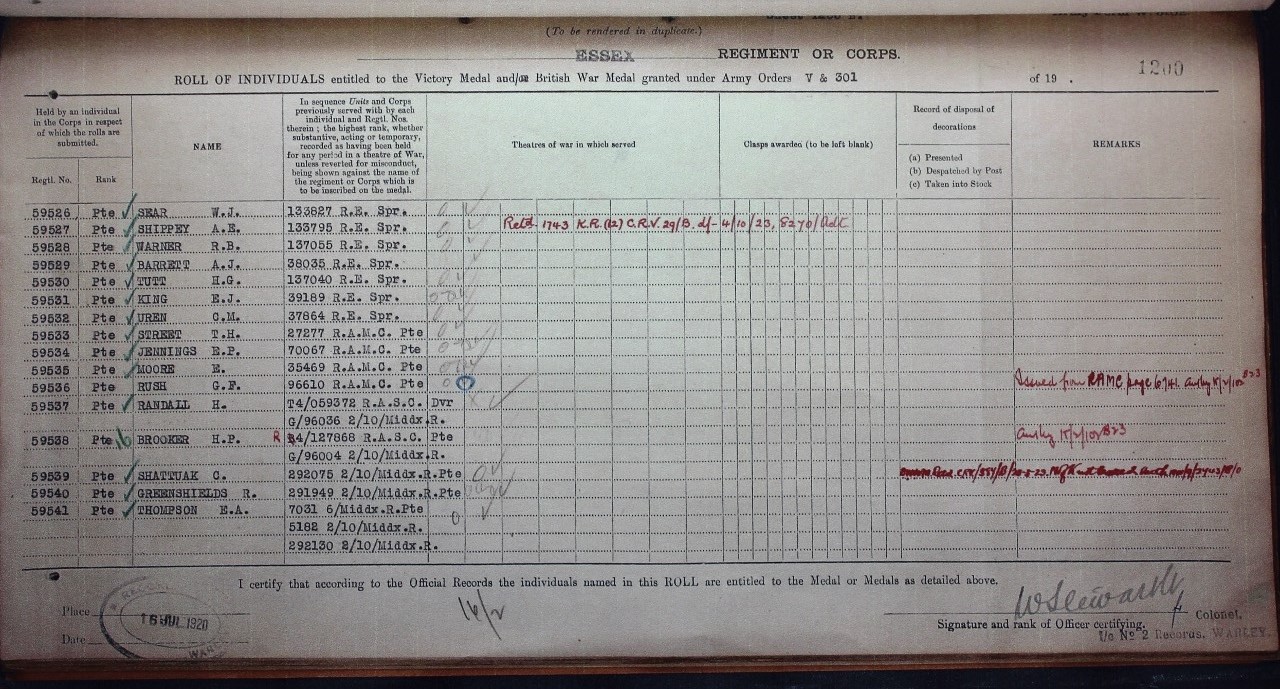 (To be rendered in duplicate.)
ESSEX REGIMENT OR CORPS.
1200
ROLL OF INDIVIDUALS entitled to the Victory Medal and/or British War Medal granted under Army Orders V & 301 of 19 .
Held by an individual in the Corps in respect of which the rolls are submitted.
Regtl. No. Rank
NAME
In sequence Units and Corps previously served with by each individual and Regtl. Nos. therein ; the highest rank, whether substantive, acting or temporary, recorded as having been held for any period in a theatre of War, unless reverted for misconduct, being shown against the name of the regiment or Corps which is to be inscribed on the medal.
Theatres of war in which served
Clasps awarded (to be left blank)
Record of disposal of decorations
(a) Presented
(b) Despatched by Post
(c) Taken into Stock
REMARKS
59526 Pte SEAR W.J. 133827 R.E. Spr.
59527 Pte SHIPPEY A.E. 133795 R.E. Spr. Retd 1743 K.R. (12) C.R.V. 29/B. d/- 4/10/23, 8270/Adt
59528 Pte WARNER R.B. 137055 R.E. Spr.
59529 Pte BARRETT A.J. 38035 R.E. Spr.
59530 Pte TUTT H.G. 137040 R.E. Spr.
59531 Pte KING E.J. 39189 R.E. Spr.
59532 Pte UREN C.M. 37864 R.E. Spr.
59533 Pte STREET T.H. 27277 R.A.M.C. Pte
59534 Pte JENNINGS E.P. 70067 R.A.M.C. Pte
59535 Pte MOORE E. 35469 R.A.M.C. Pte
59536 Pte RUSH G.F. 96610 R.A.M.C. Pte Issued from RAMC page 6741.
59537 Pte RANDALL H. T4/059372 R.A.S.C. Dvr
G/96036 2/10/Middx.R.
59538 Pte BROOKER H.P. R 4/127868 R.A.S.C. Pte
G/96004 2/10/Middx.R.
59539 Pte SHATTUAK C. 292075 2/10/Middx.R.Pte
59540 Pte GREENSHIELDS R. 291949 2/10/Middx.R.Pte
59541 Pte THOMPSON E.A. 7031 6/Middx.R.Pte
5182 2/10/Middx.R.
292130 2/10/Middx.R.
I certify that according to the Official Records the individuals named in this ROLL are entitled to the Medal or Medals as detailed above.
Place
16 JUL 1920
Date
14/2
Colonel,
Signature and rank of Officer certifying.
I/c No 2 Records, WARLEY.